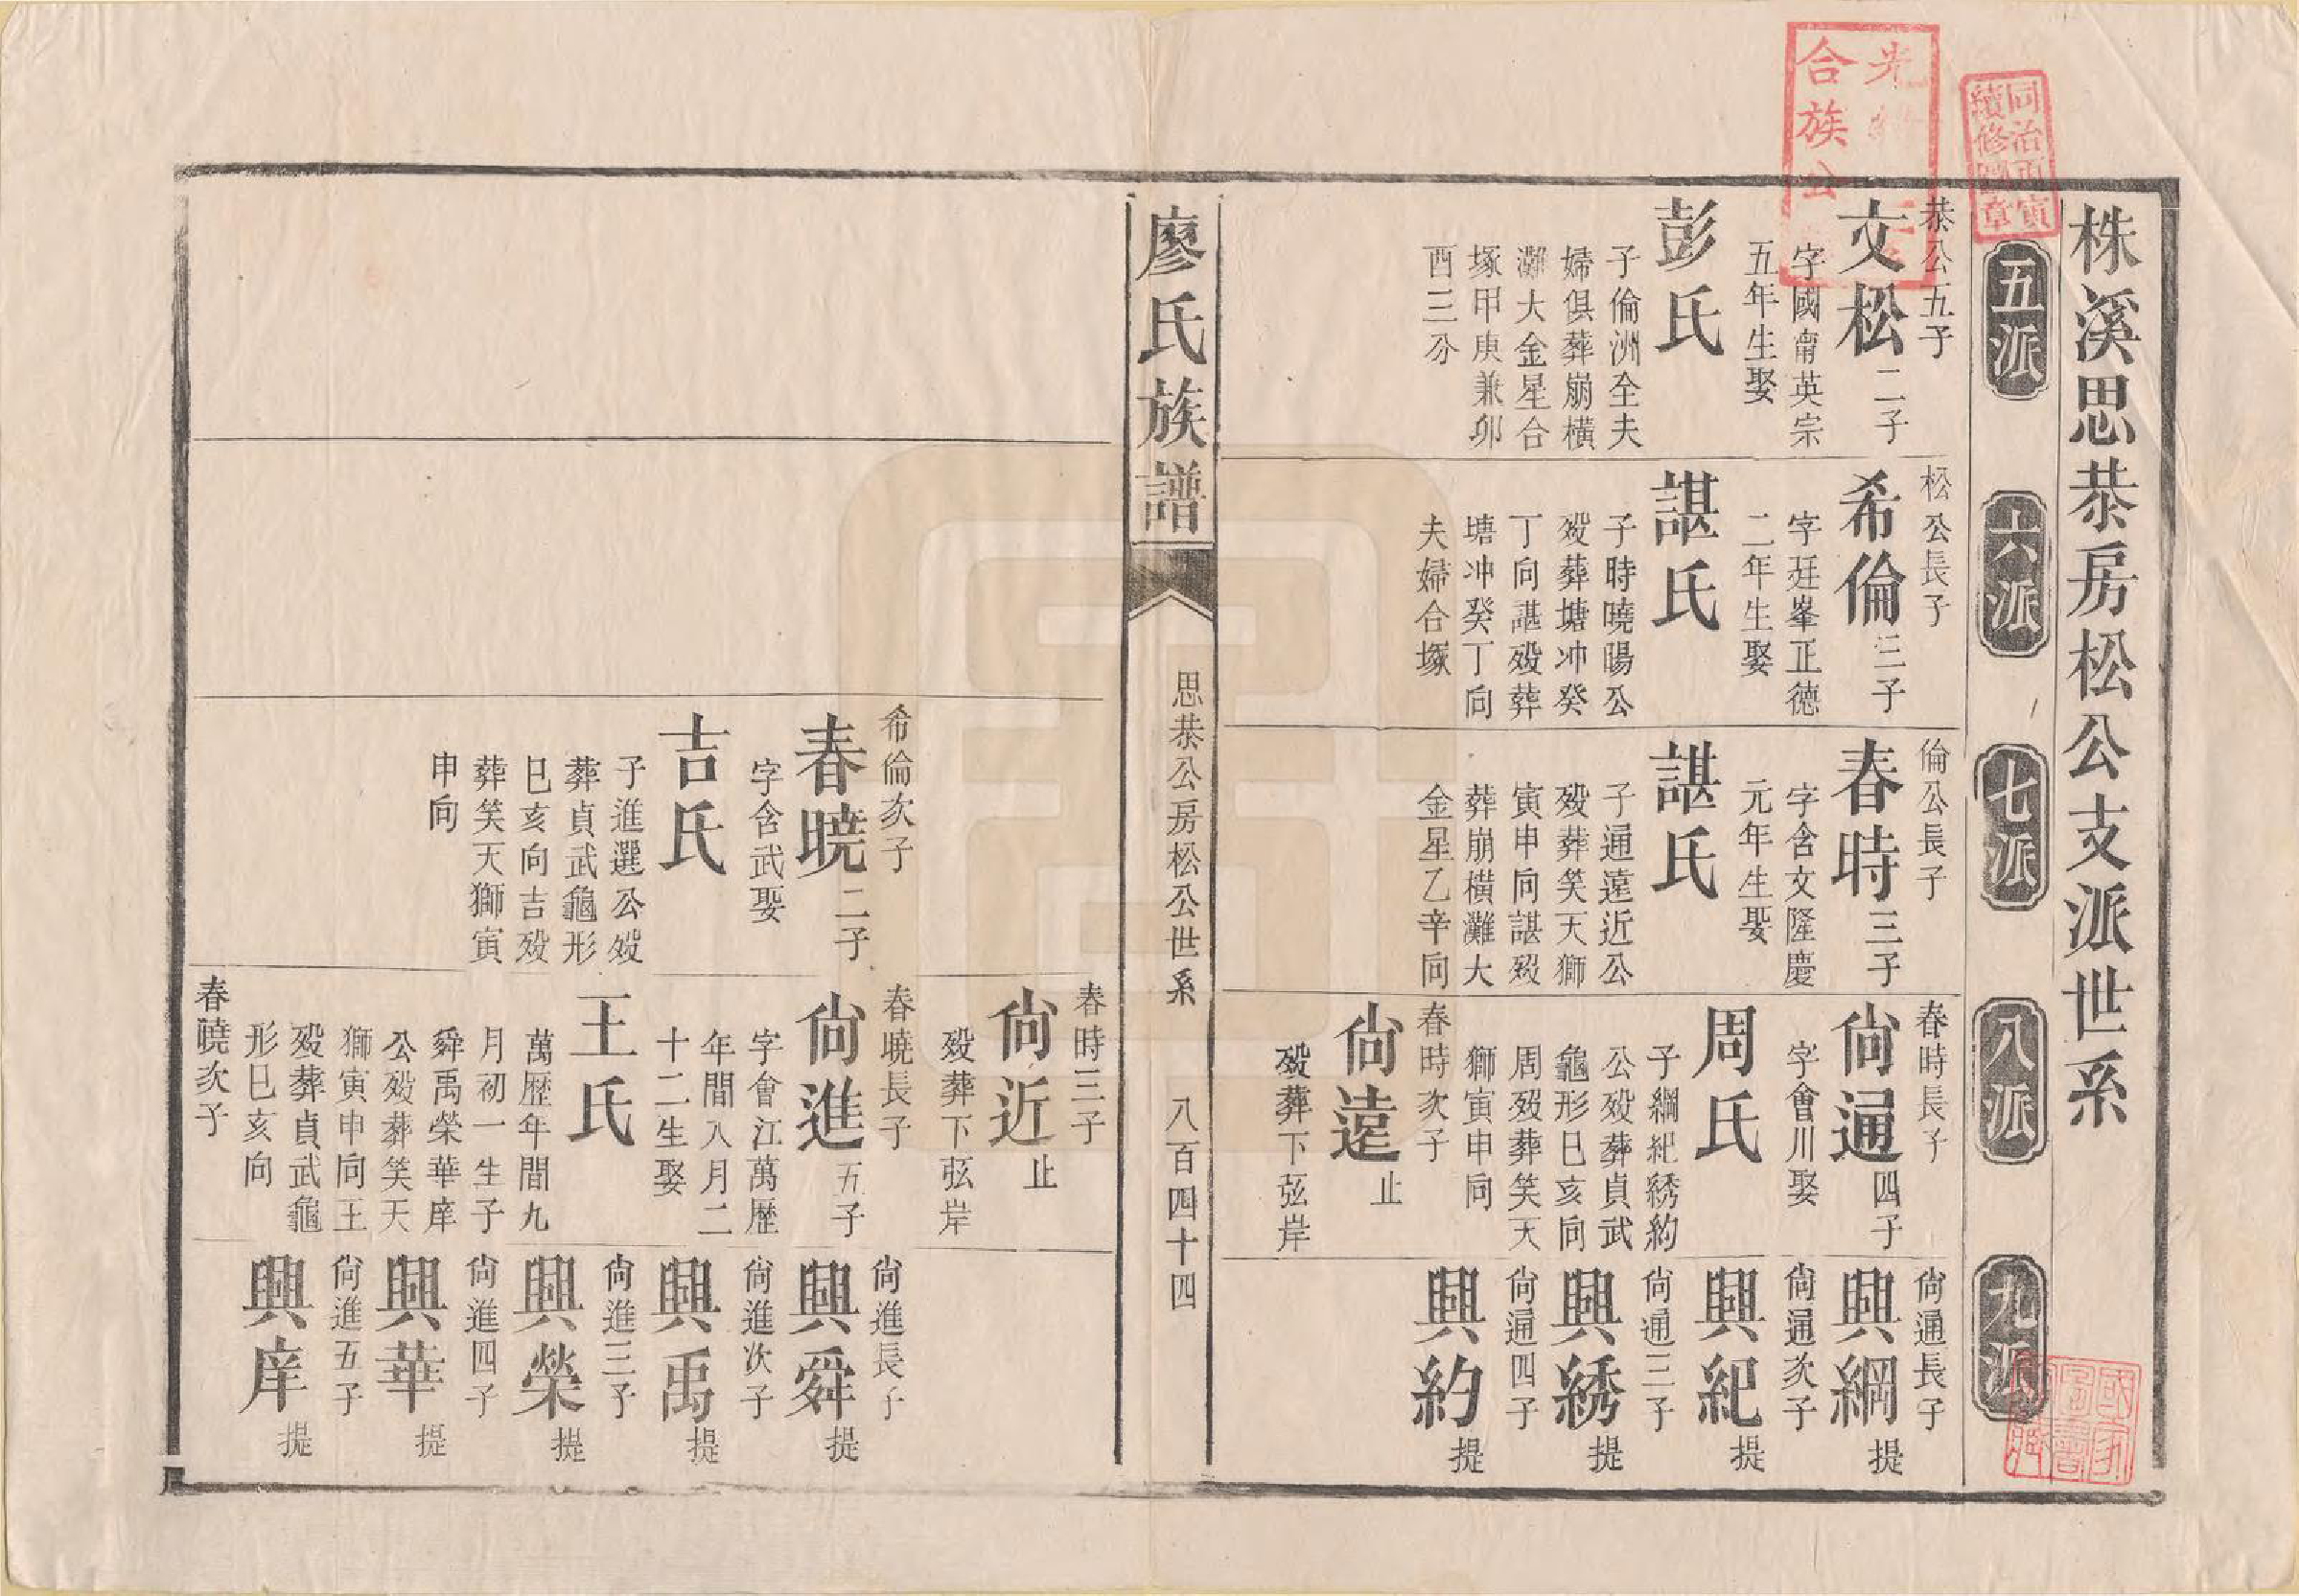 株溪思恭房松公支派世系
五派
六派
七派
八派
九派
恭公五子
文松
二子
字國甯英宗
五年生娶
彭氏
子倫洲全夫
婦俱葬崩橫
灘大金星合
塚甲庚兼卯
酉三分
松公長子
希倫
三子
字廷峯正德
二年生娶
諶氏
子時曉陽公
歿葬塘冲癸
丁向諶歿葬
塘冲癸丁向
夫婦合塚
倫公長子
春時
三子
字含文隆慶
元年生娶
諶氏
子通遠近公
歿葬笑天獅
寅申向諶歿
葬崩橫灘大
金星乙辛向
春時長子
尙通
四子
字會川娶
周氏
子綱紀綉約
公歿葬貞武
龜形巳亥向
周歿葬笑天
獅寅申向
春時次子
尙遠
止
歿葬下弦岸
尙通長子
興綱
提
尙通次子
興紀
提
尙通三子
興綉
提
尙通四子
興約
提
廖氏族譜
思恭公房松公世系
八百四十四
希倫次子
春曉
二子
字含武娶
吉氏
子進選公歿
葬貞武龜形
巳亥向吉歿
葬笑天獅寅
申向
春時三子
尙近
止
歿葬下弦岸
春曉長子
尙進
五子
字會江萬歷
年間八月二
十二生娶
王氏
萬歷年間九
月初一生子
舜禹榮華庠
公歿葬笑天
獅寅申向王
歿葬貞武龜
形巳亥向
春曉次子
尙進長子
興舜
提
尙進次子
興禹
提
尙進三子
興榮
提
尙進四子
興華
提
尙進五子
興庠
提
同治丙寅
續修圖章
合族公